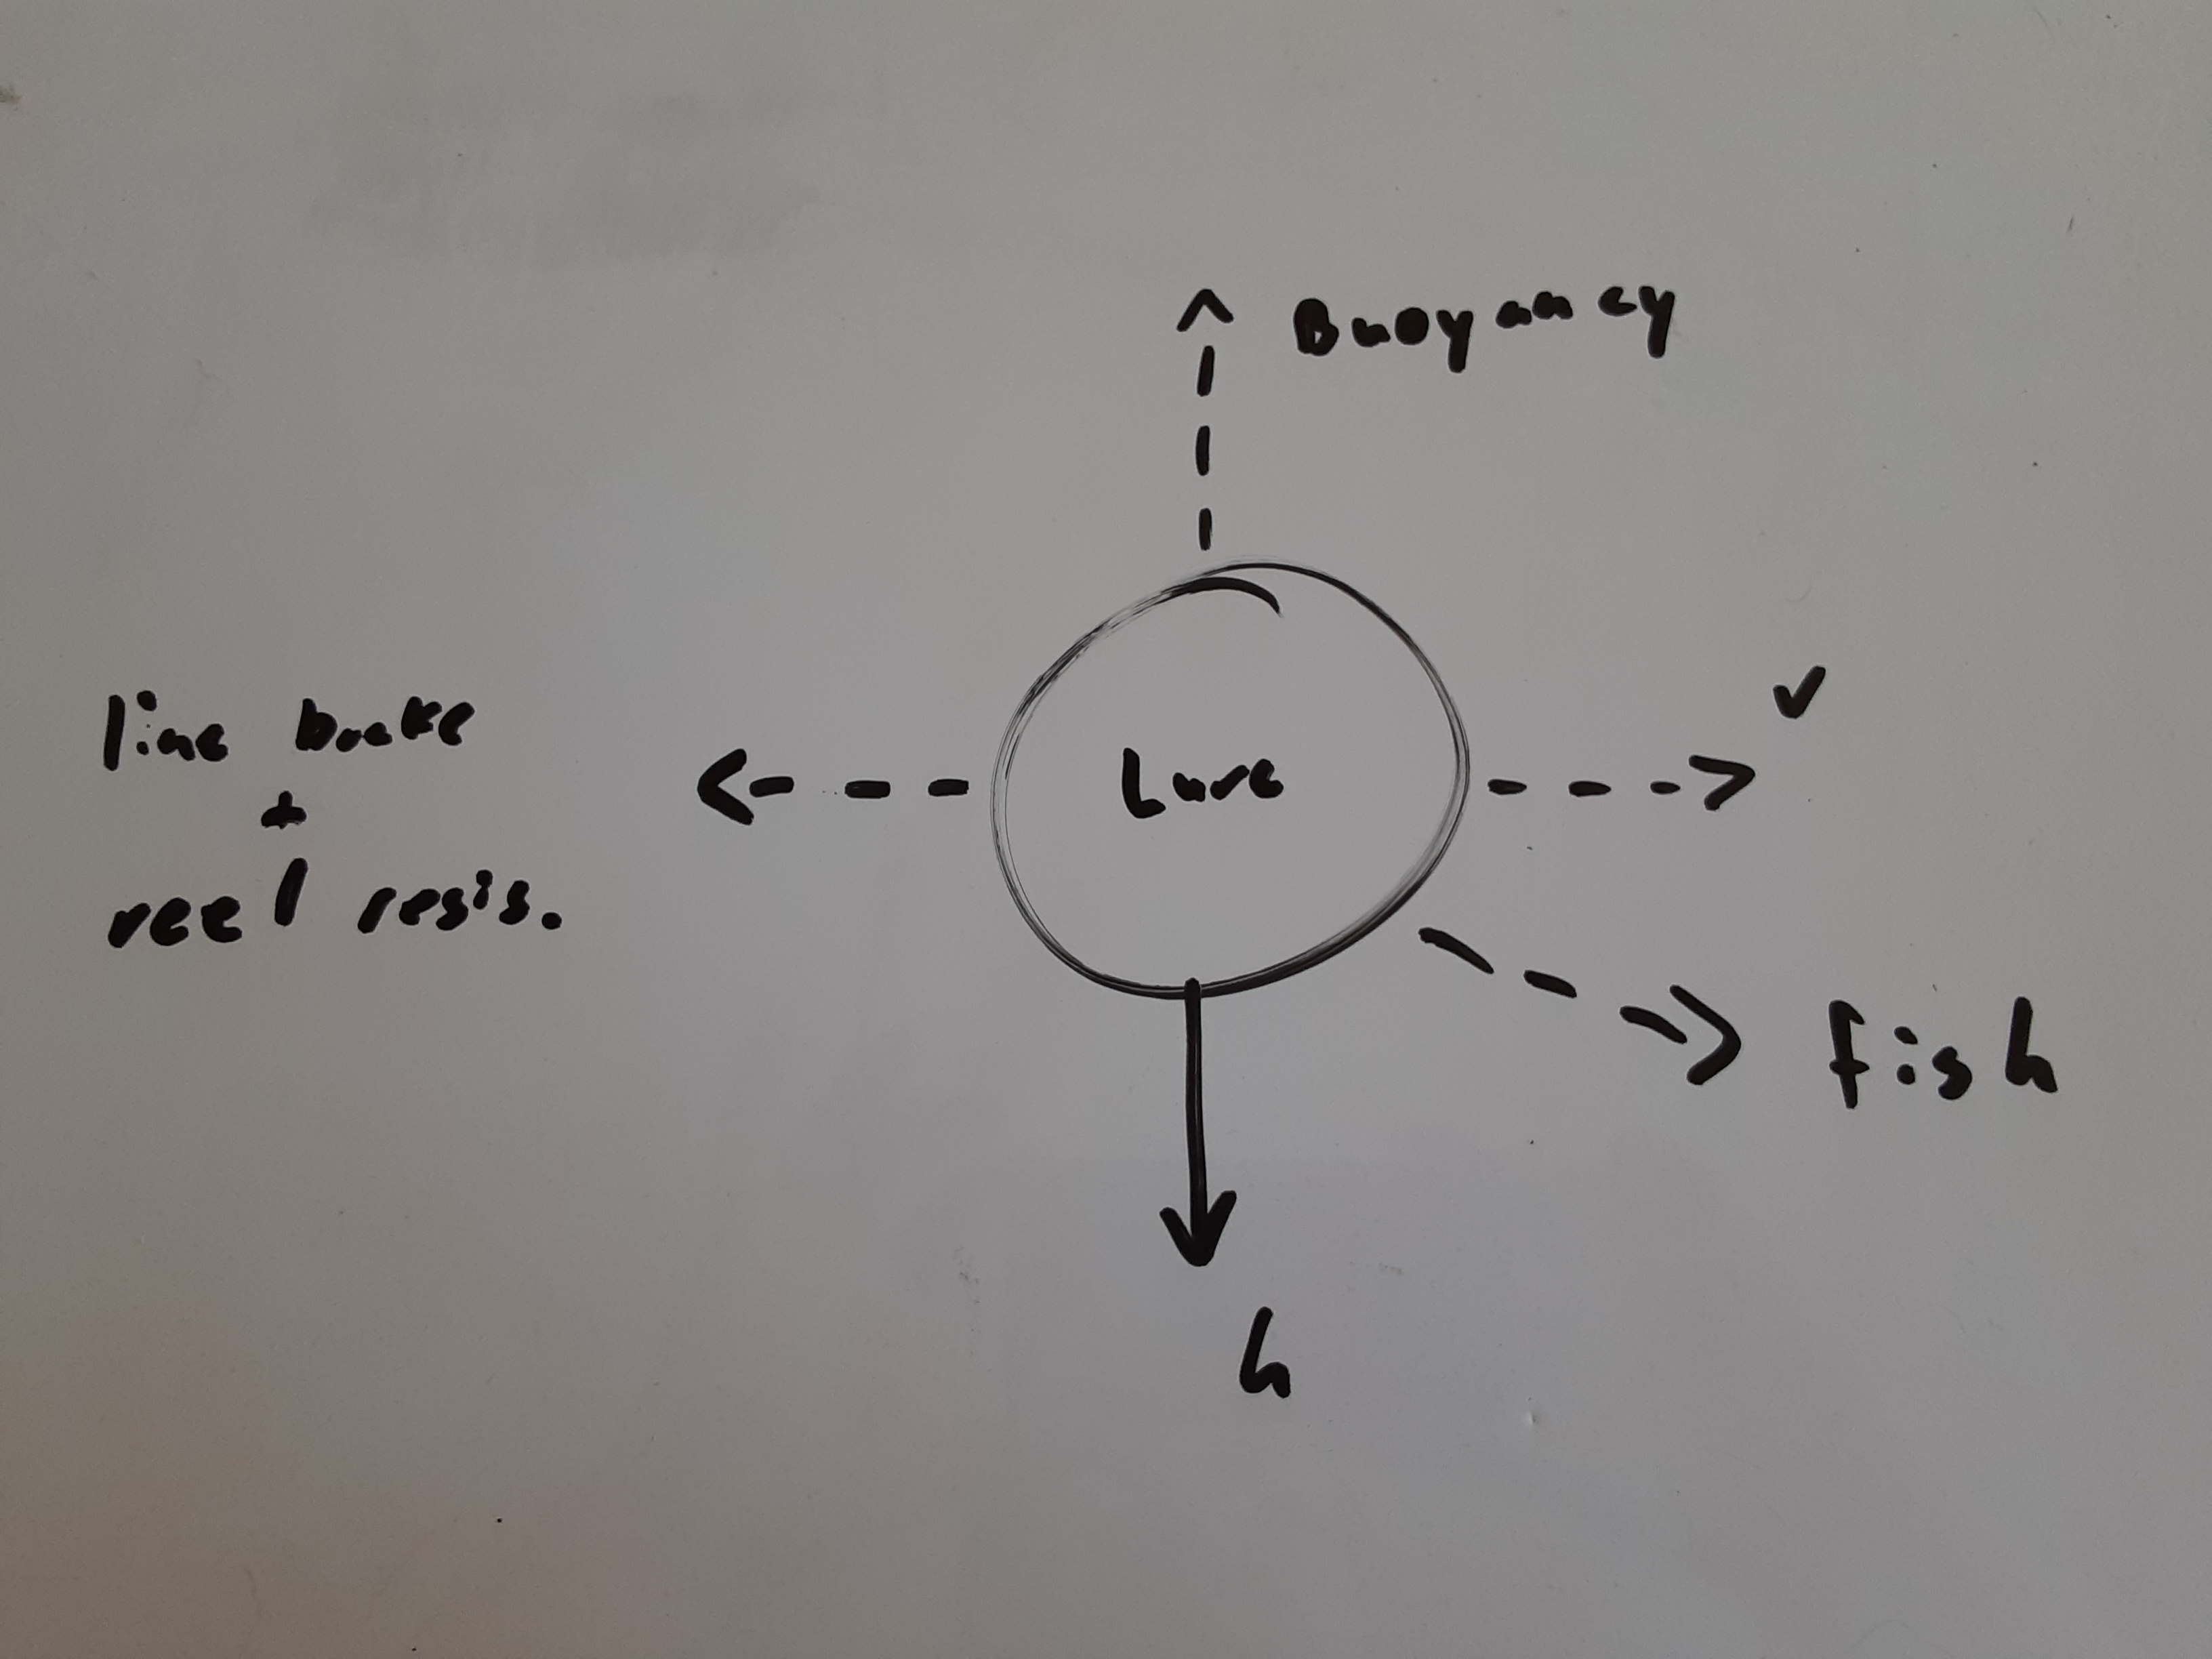 Buoyancy
v
line brake
+
reel resis.
Lure
fish
G